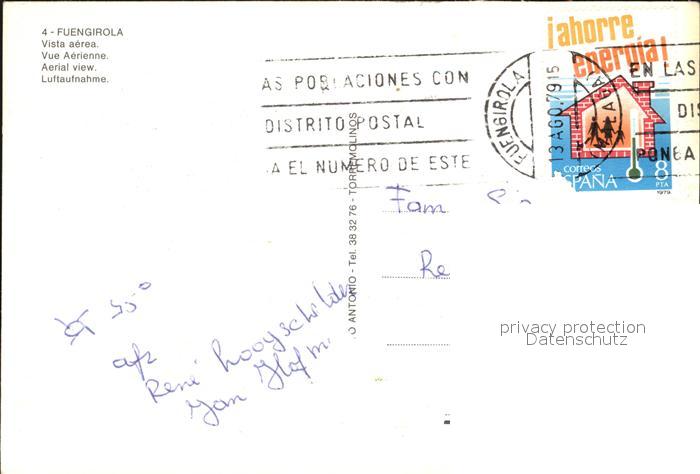 4 - FUENGIROLA
Vista aérea.
Vue Aérienne.
Aerial view.
Luftaufnahme.
¡ahorre
energía!
AS POBLACIONES CON
DISTRITO POSTAL
A EL NUMERO DE ESTE
FUENGIROLA
13 AGO. 79 15
MALAGA
EN LAS
DIS
PONGA
correos
ESPAÑA
8
PTA
1979
O ANTONIO - Tel. 38 32 76 - TORREMOLINOS
Fam
Re
35°
afz
René
Jan
privacy protection
Datenschutz